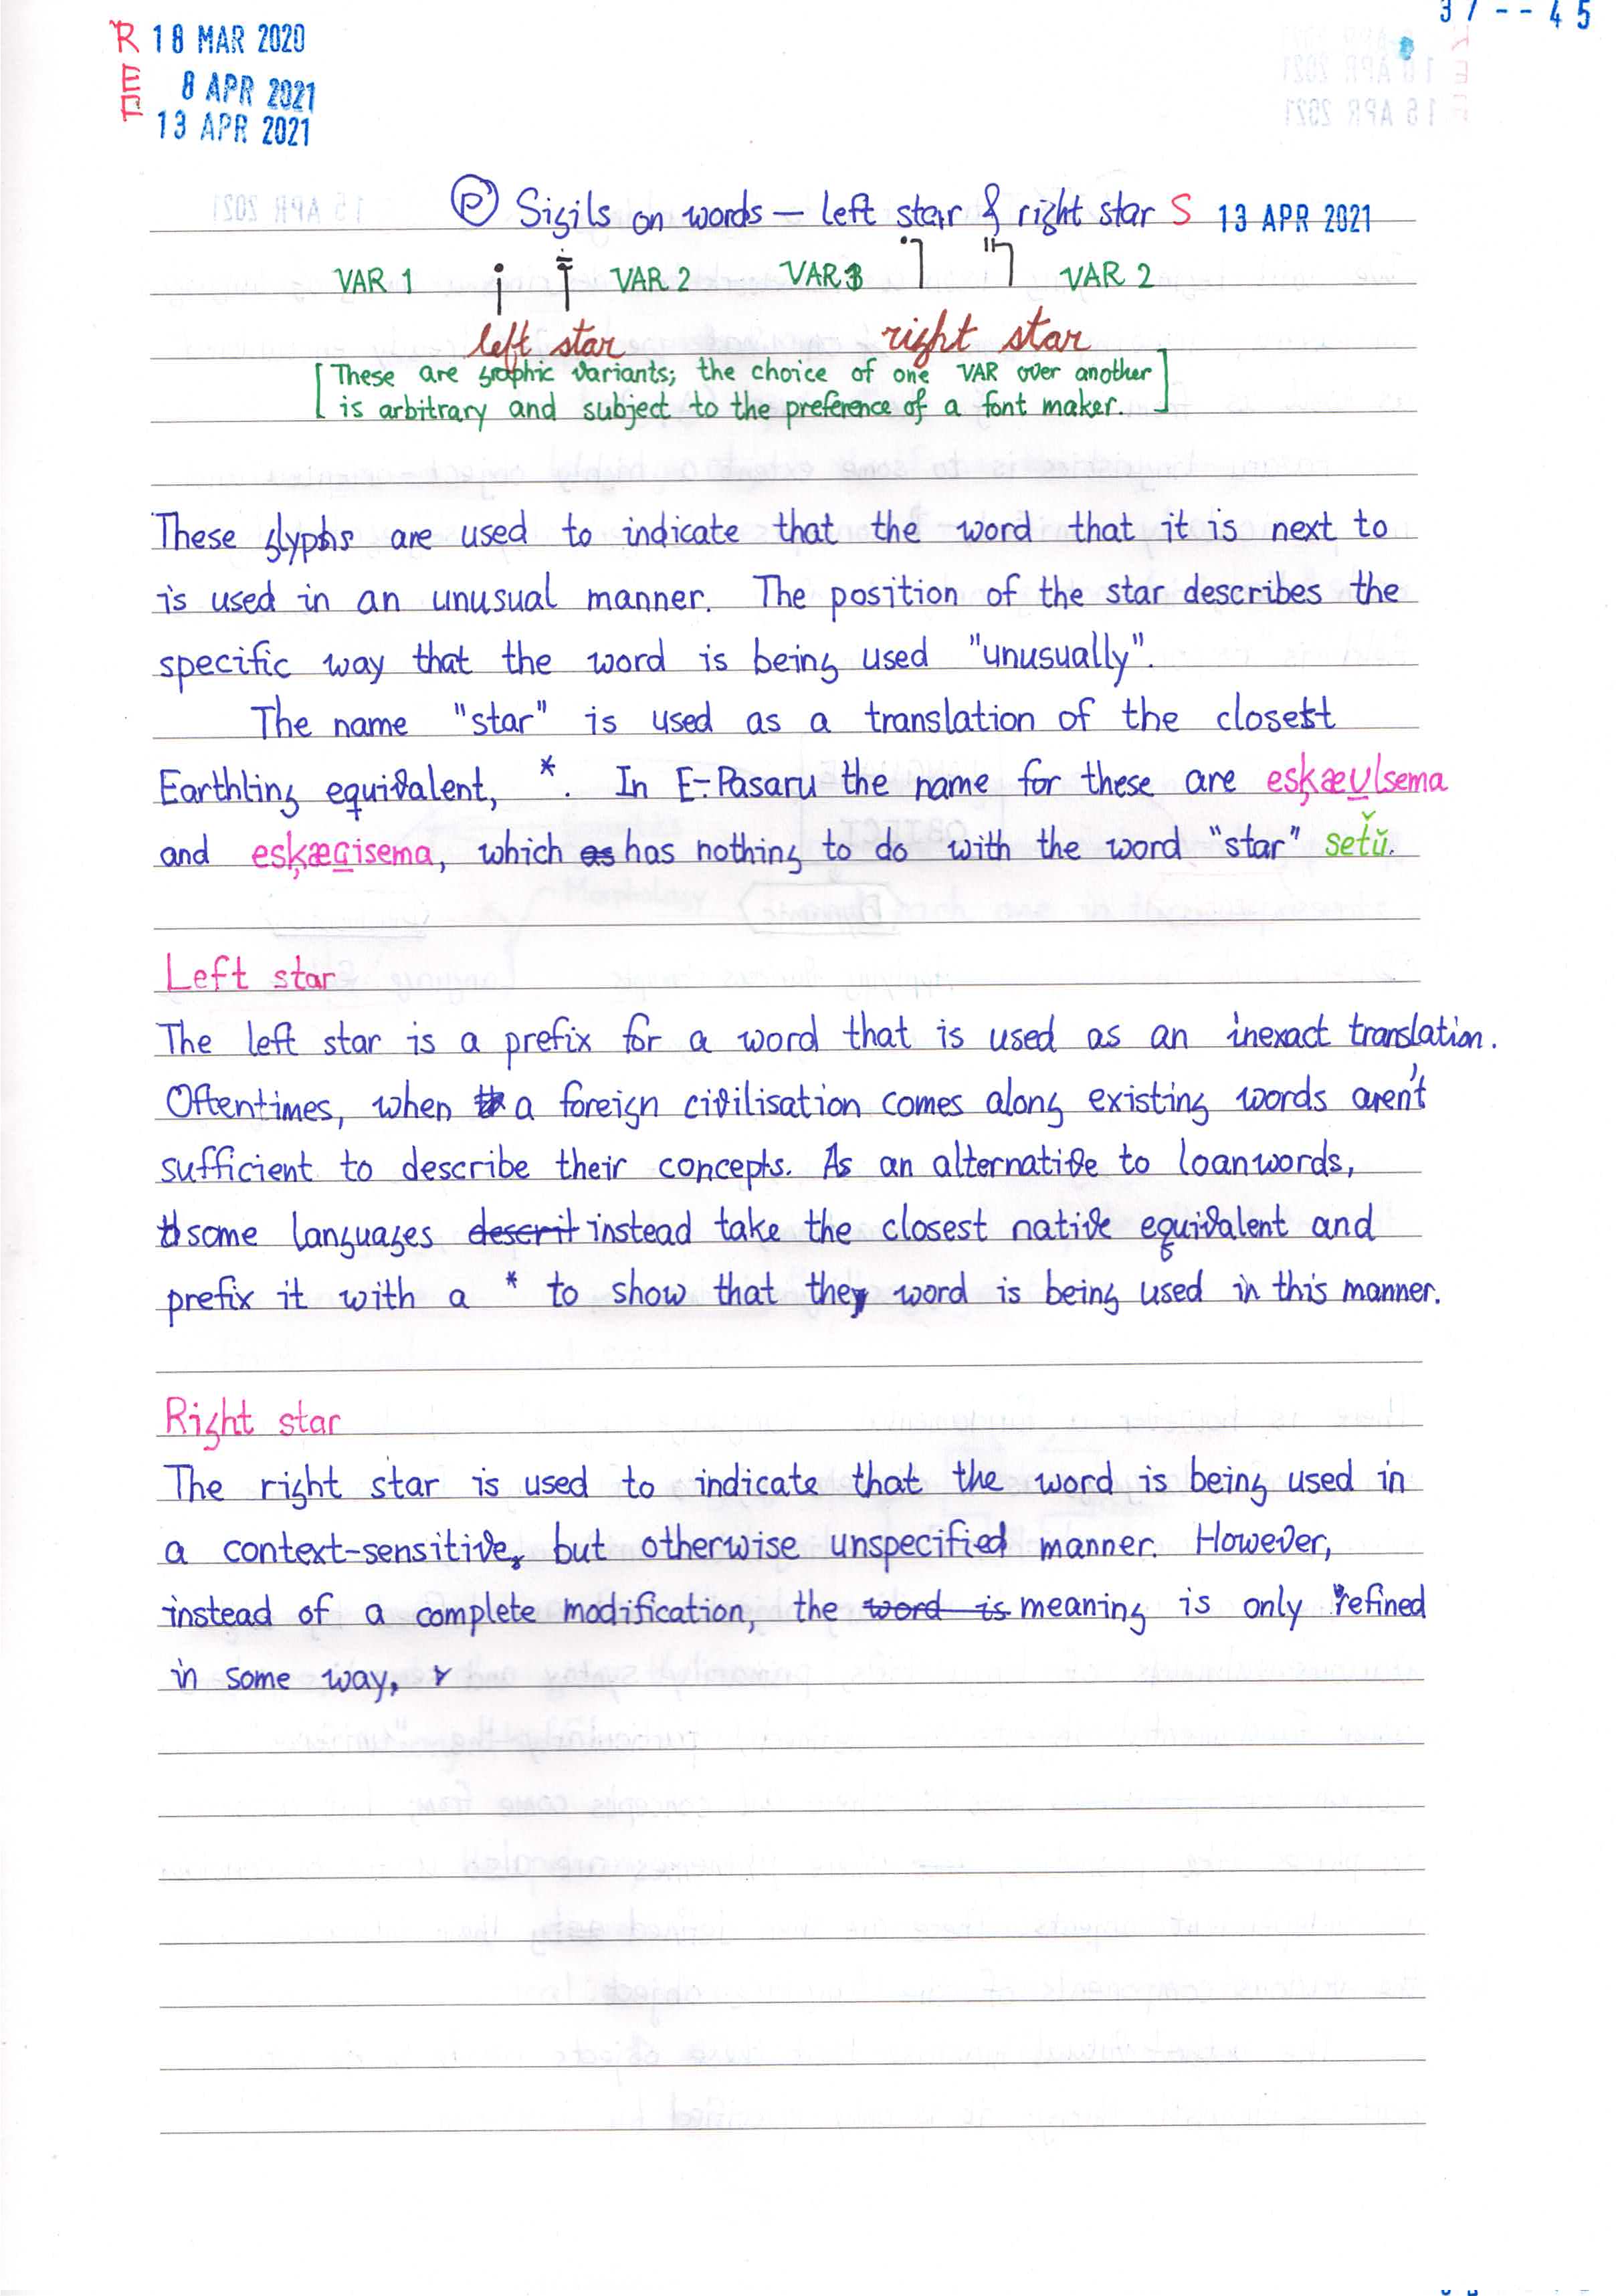 37--45
R 18 MAR 2020
E 8 APR 2021
F 13 APR 2021
Ⓟ Sigils on words — left star & right star S 13 APR 2021
VAR 1 VAR 2 VAR 3 VAR 2
left star right star
[These are graphic variants; the choice of one VAR over another
is arbitrary and subject to the preference of a font maker.]
These glyphs are used to indicate that the word that it is next to
is used in an unusual manner. The position of the star describes the
specific way that the word is being used "unusually".
The name "star" is used as a translation of the closest
Earthling equivalent, *. In E-Pasaru the name for these are eskæu̲lsema
and eskæg̲isema, which as has nothing to do with the word "star" setǔ.
Left star
The left star is a prefix for a word that is used as an inexact translation.
Oftentimes, when a foreign civilisation comes along existing words aren't
sufficient to describe their concepts. As an alternative to loanwords,
some languages descrit instead take the closest native equivalent and
prefix it with a * to show that they word is being used in this manner.
Right star
The right star is used to indicate that the word is being used in
a context-sensitive, but otherwise unspecified manner. However,
instead of a complete modification, the word is meaning is only refined
in some way,